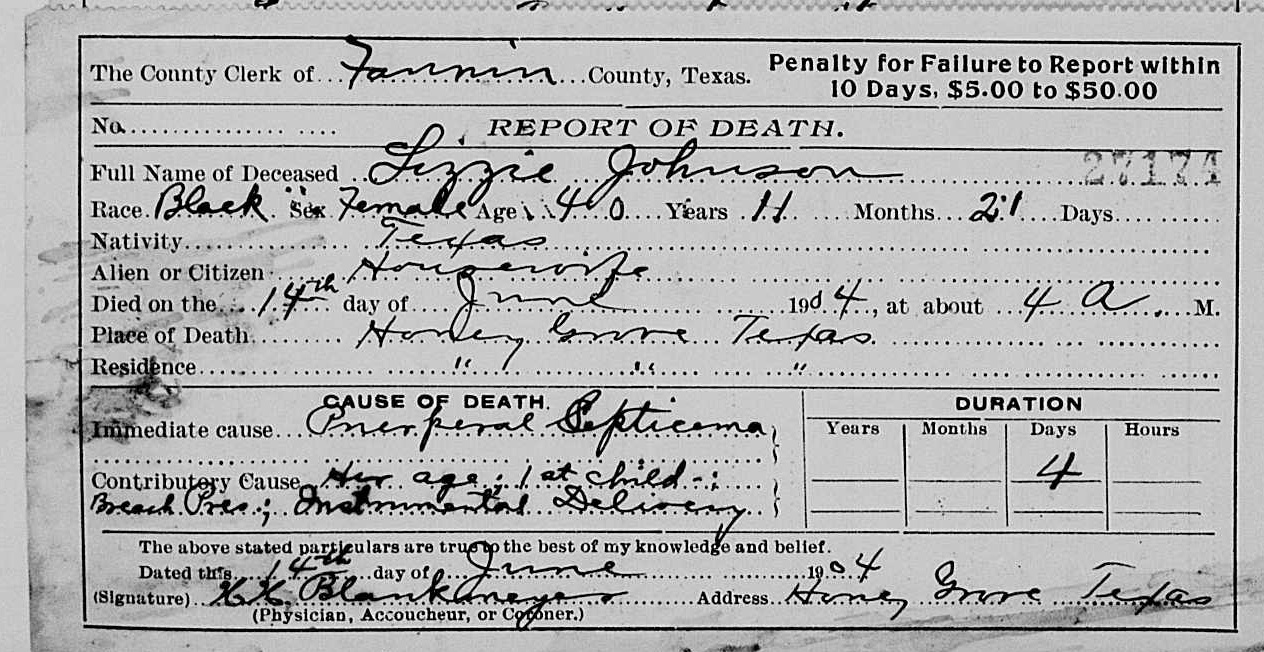 The County Clerk of...Fannin...County, Texas. Penalty for Failure to Report within
10 Days, $5.00 to $50.00
No. REPORT OF DEATH.
Full Name of Deceased Lizzie Johnson 27174
Race. Black Sex Female Age 40 Years 11 Months 21 Days
Nativity Texas
Alien or Citizen Housewife
Died on the 14th day of June 1904, at about 4 A. M.
Place of Death Honey Grove Texas
Residence " " "
CAUSE OF DEATH. DURATION
Immediate cause Puerperal Septicema Years Months Days Hours
Contributory Cause Her age; 1st child-; 4
Breach Pres.; Instrumental Delivery
The above stated particulars are true to the best of my knowledge and belief.
Dated this 14th day of June 1904
(Signature) Blankmeyer Address Honey Grove Texas
(Physician, Accoucheur, or Coroner.)